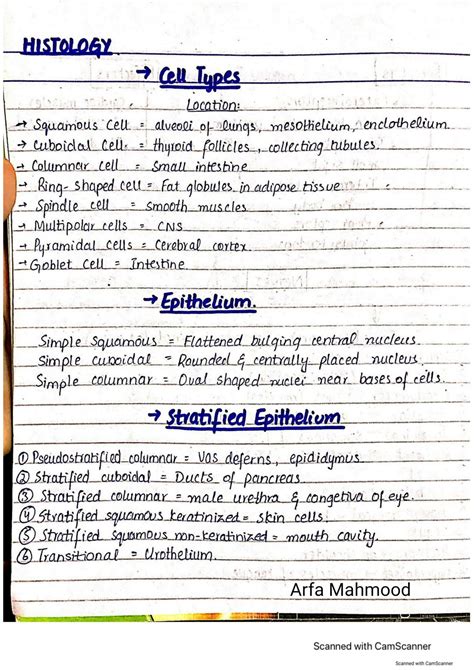 HISTOLOGY
→ Cell Types
Location:
→ Squamous Cell = alveoli of lungs, mesothelium, endothelium
→ Cuboidal Cell = thyroid follicles, collecting tubules.
→ Columnar cell = Small intestine
→ Ring-shaped cell = Fat globules in adipose tissue
→ Spindle cell = Smooth muscles
→ Multipolar cells = CNS
→ Pyramidal cells = Cerebral cortex.
→ Goblet Cell = Intestine.
→ Epithelium.
Simple Squamous = Flattened bulging central nucleus.
Simple cuboidal = Rounded & centrally placed nucleus
Simple columnar = Oval shaped nuclei near bases of cells.
→ Stratified Epithelium
① Pseudostratified columnar = Vas deferns, epididymus
② Stratified cuboidal = Ducts of pancreas
③ Stratified columnar = male urethra & congetiva of eye.
④ Stratified squamous keratinized = skin cells.
⑤ Stratified Squamous non-keratinized = mouth cavity.
⑥ Transitional = Urothelium.
Arfa Mahmood
Scanned with CamScanner
Scanned with CamScanner